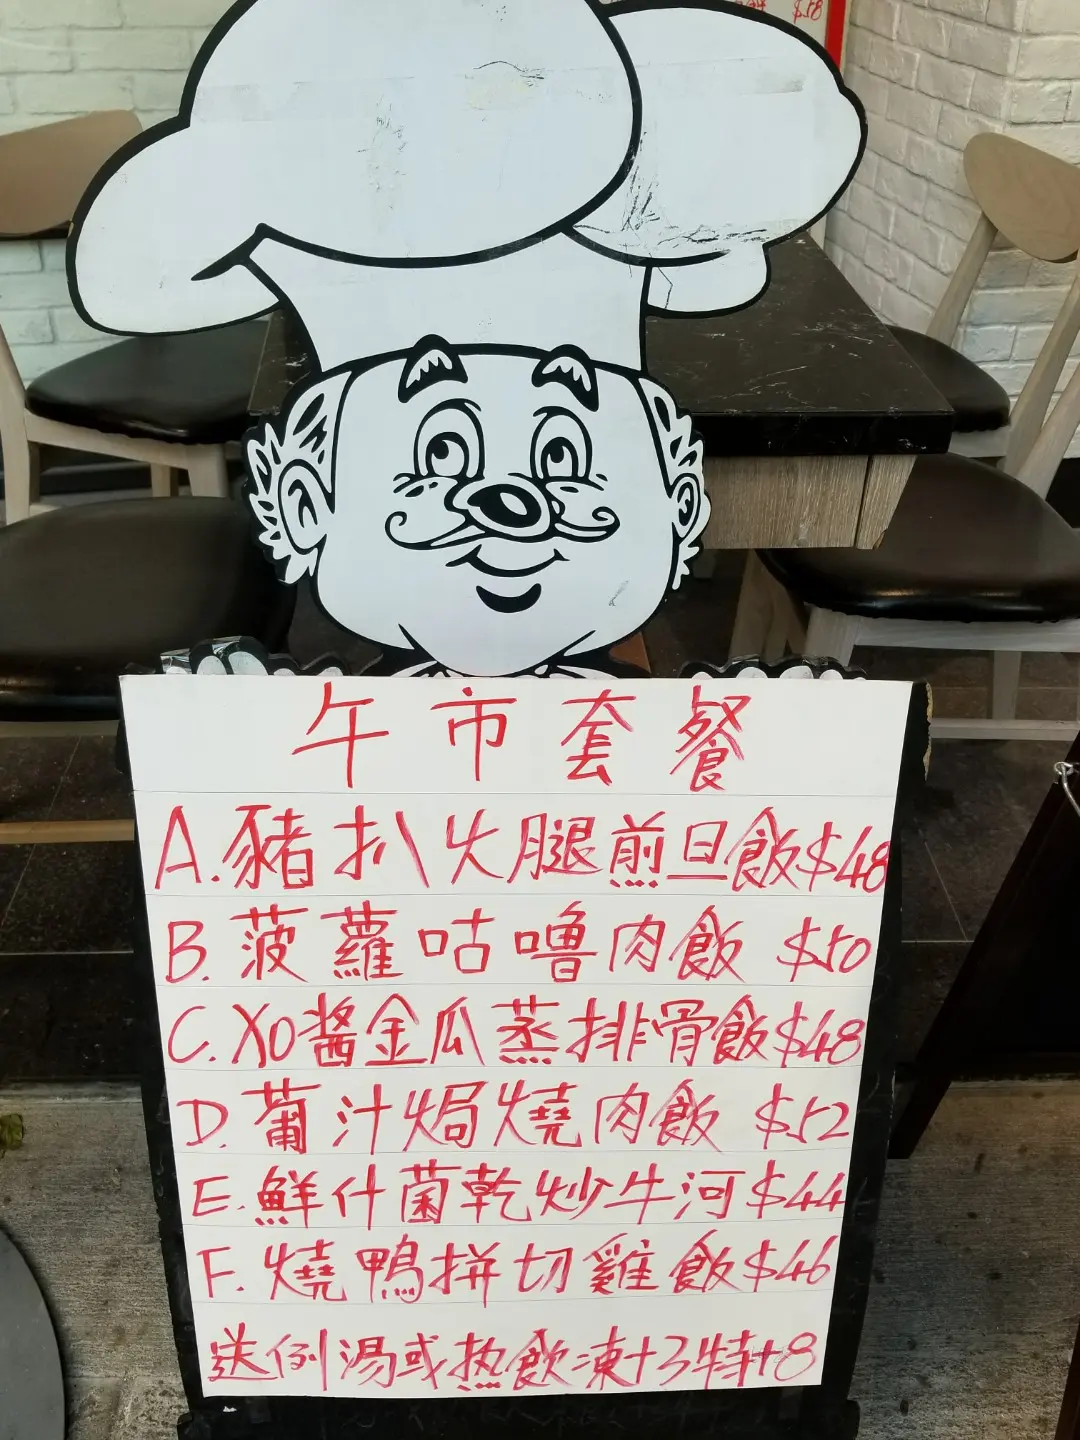 $58
午市套餐
A.豬扒火腿煎旦飯$48
B.菠蘿咕嚕肉飯 $50
C.XO醬金瓜蒸排骨飯$48
D.葡汁焗燒肉飯 $52
E.鮮什菌乾炒牛河$44
F.燒鴨拼切雞飯$46
送例湯或热飲凍+3特+8